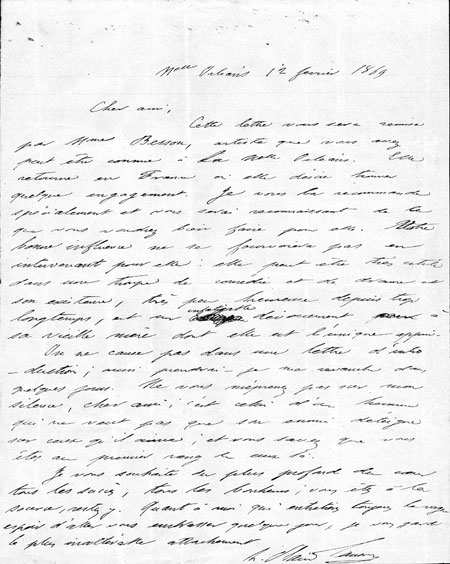 Nlle Orléans 12 février 1869
Cher ami,
Cette lettre vous sera remise
par Mme Besson, artiste que vous avez
peut être connue à La Nlle Orléans. Elle
retourne en France où elle désire trouver
quelque engagement. Je vous la recommande
spécialement et vous serai reconnaissant de ce
que vous voudrez bien faire pour elle. Votre
bonne influence ne se fourvoiera pas en
intervenant pour elle : elle peut être très utile
dans une troupe de comédie et de drame et
son existence, très peu heureuse depuis trop
longtemps, est un infatigable dévouement à
sa vieille mère dont elle est l'unique appui.
On ne cause pas dans une lettre d'intro
-duction ; aussi prendrai-je ma revanche dans
quelques jours. Ne vous méprenez pas sur mon
silence, cher ami ; c'est celui d'un homme
qui ne veut pas que son ennui déteigne
sur ceux qu'il aime ; et vous savez que vous
êtes au premier rang de ceux là.
Je vous souhaite du plus profond du cœur
tous les succès, tous les bonheurs ; vous êtes à la
source, restez y. Quant à moi qui entretiens toujours le vague
espoir d'aller vous embrasser quelque jour, je vous garde
le plus inaltérable attachement